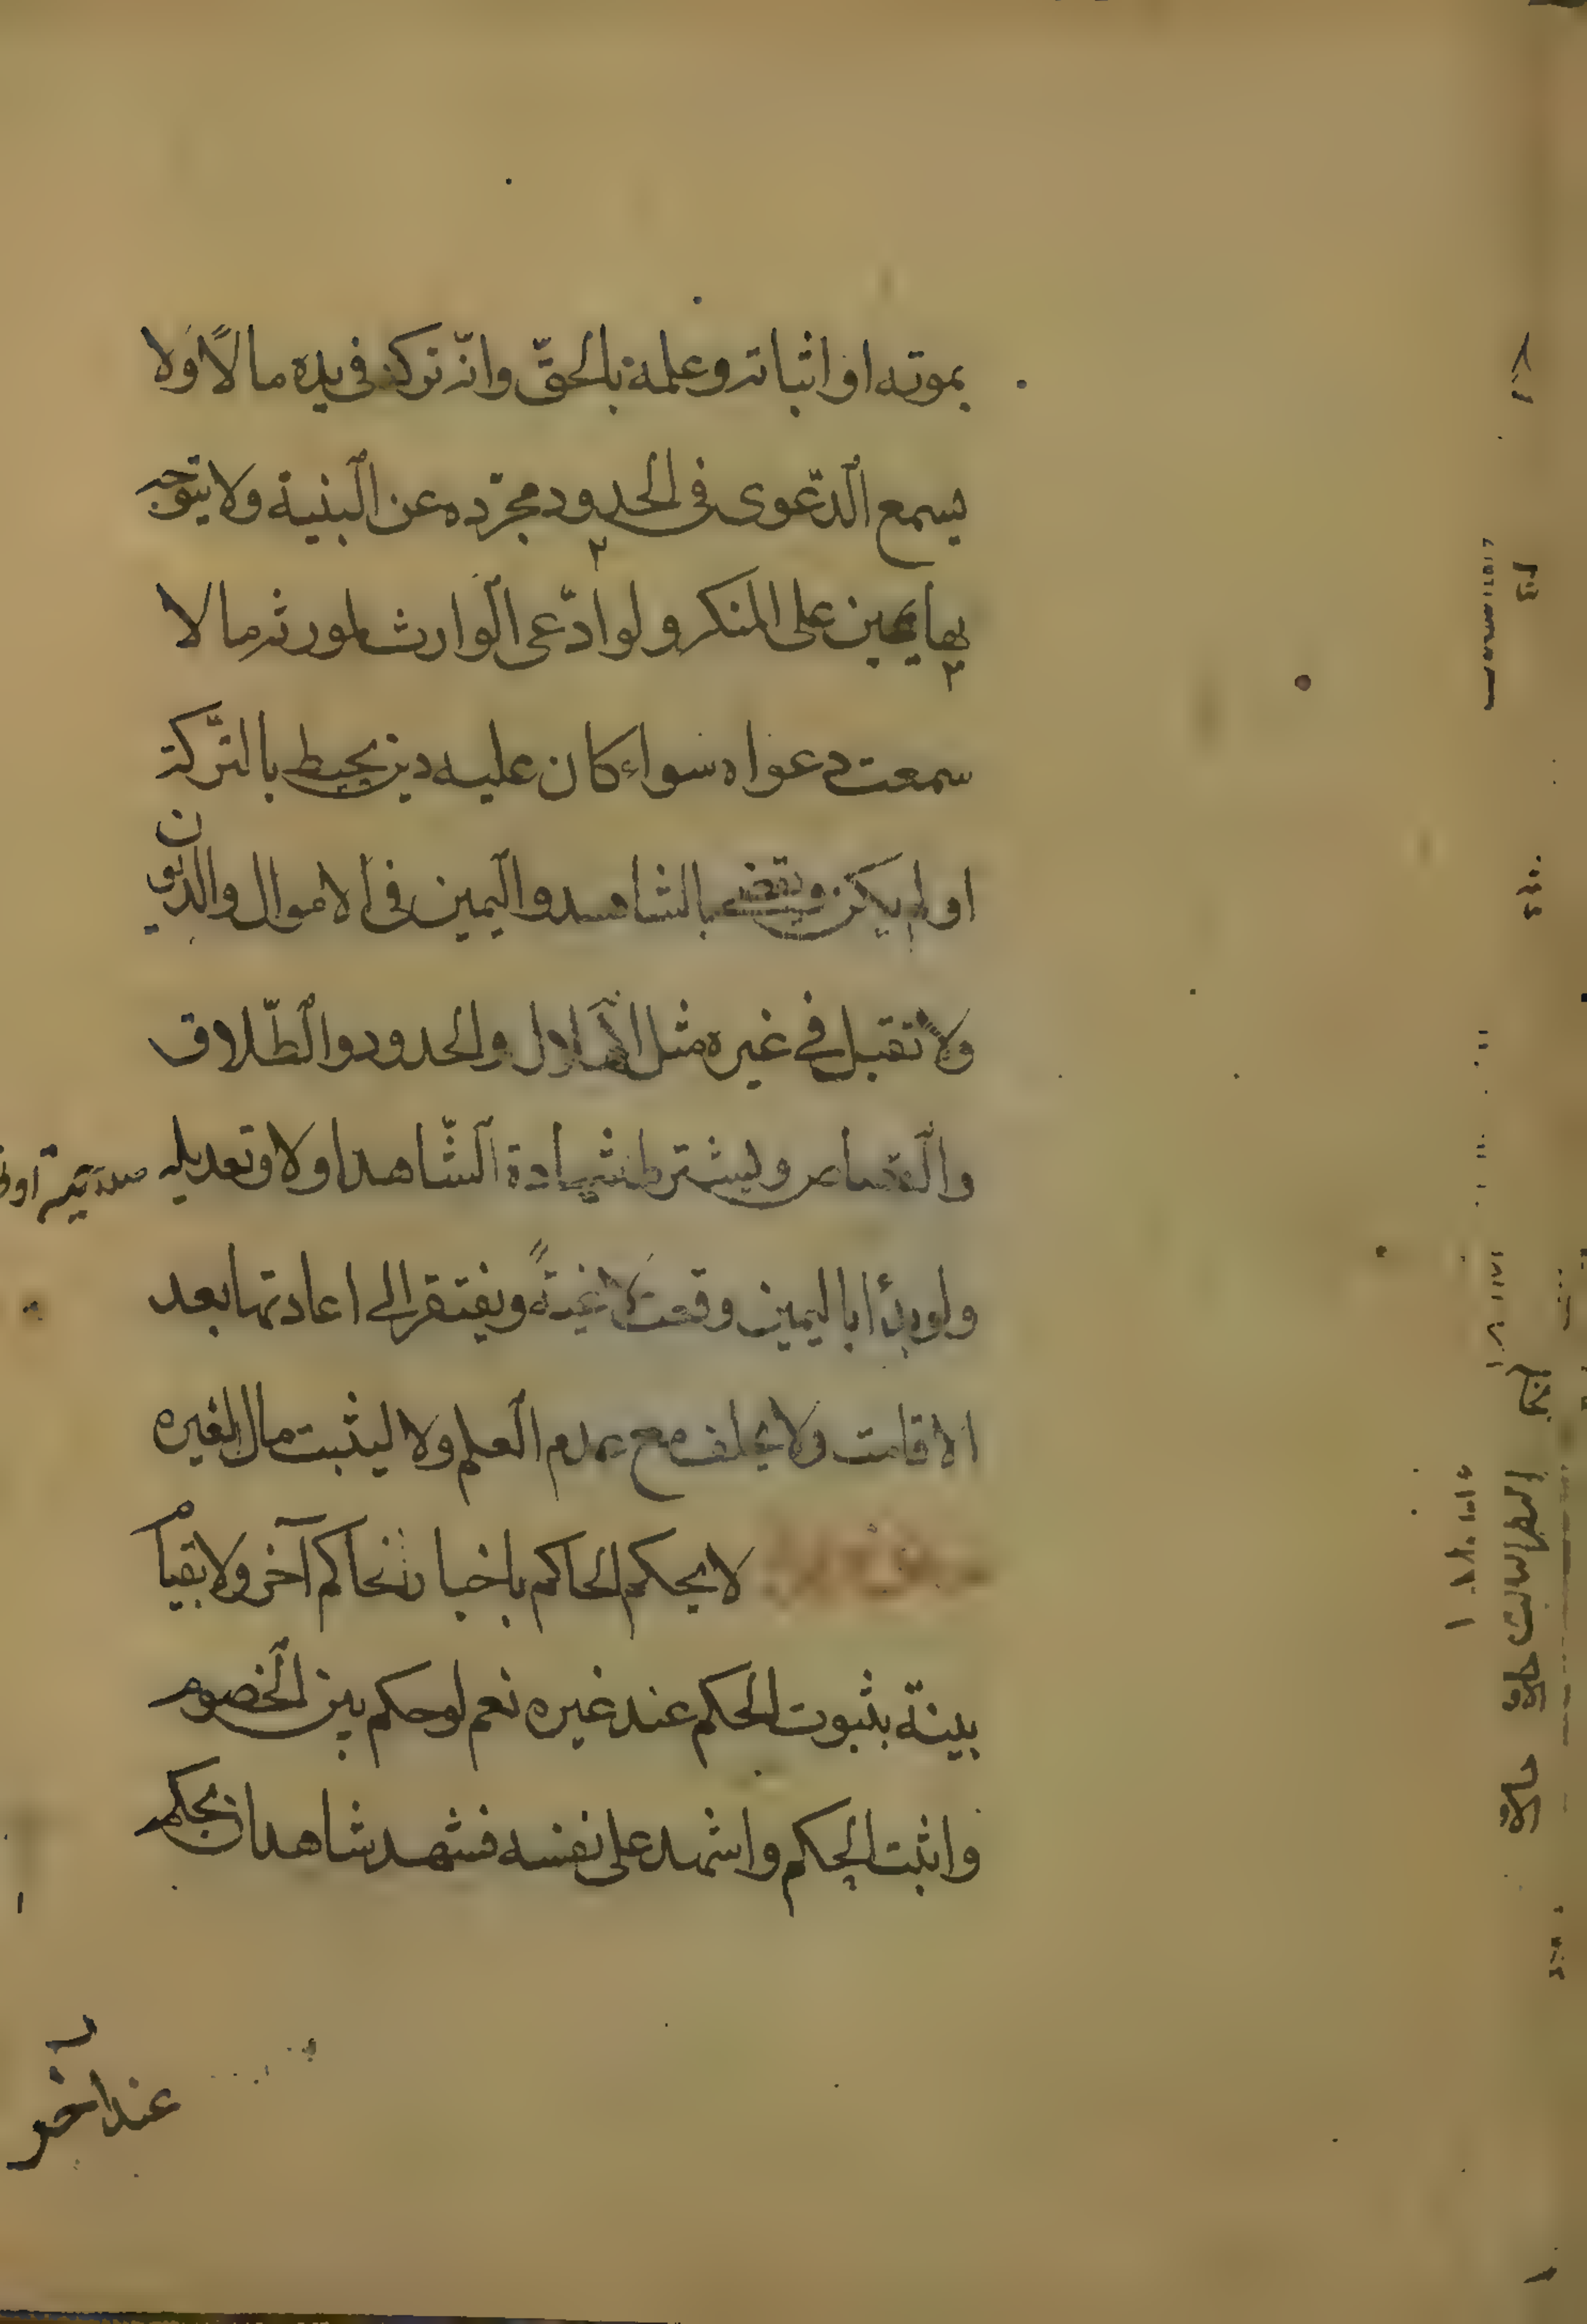 بموته او اثباته وعلمه بالحقّ وانّه ترك فى يده مالًا ولا
يسمع الدّعوى فى الحدود مجرّده عن البنية ولا يتوجه
بها يمين على المنكر ولو ادّعى الوارث لمورثه مالا
سمعت دعواه سواء كان عليه دين يحيط بالتّركة
او لم يكن ويقضى بالشاهد واليمين فى الاموال والديون
ولا تقبل فى غيره مثل الهلال والحدود والطّلاق
والقصاص ويشترط شهادة الشّاهد اولا وتعديله
ولو بدأ باليمين وقعت لاغيةً ويفتقر الى اعادتها بعد
الاقامت ولا يحلف مع عدم العلم ولا ليثبت مال الغيره
لا يحكم الحاكم باخبار حاكم آخر ولا بقيام
بينة بثبوت الحكم عند غيره نعم لو حكم بين الخصوم
واثبت الحكم واشهد على نفسه فشهد شاهدان بحكمه
عند آخر